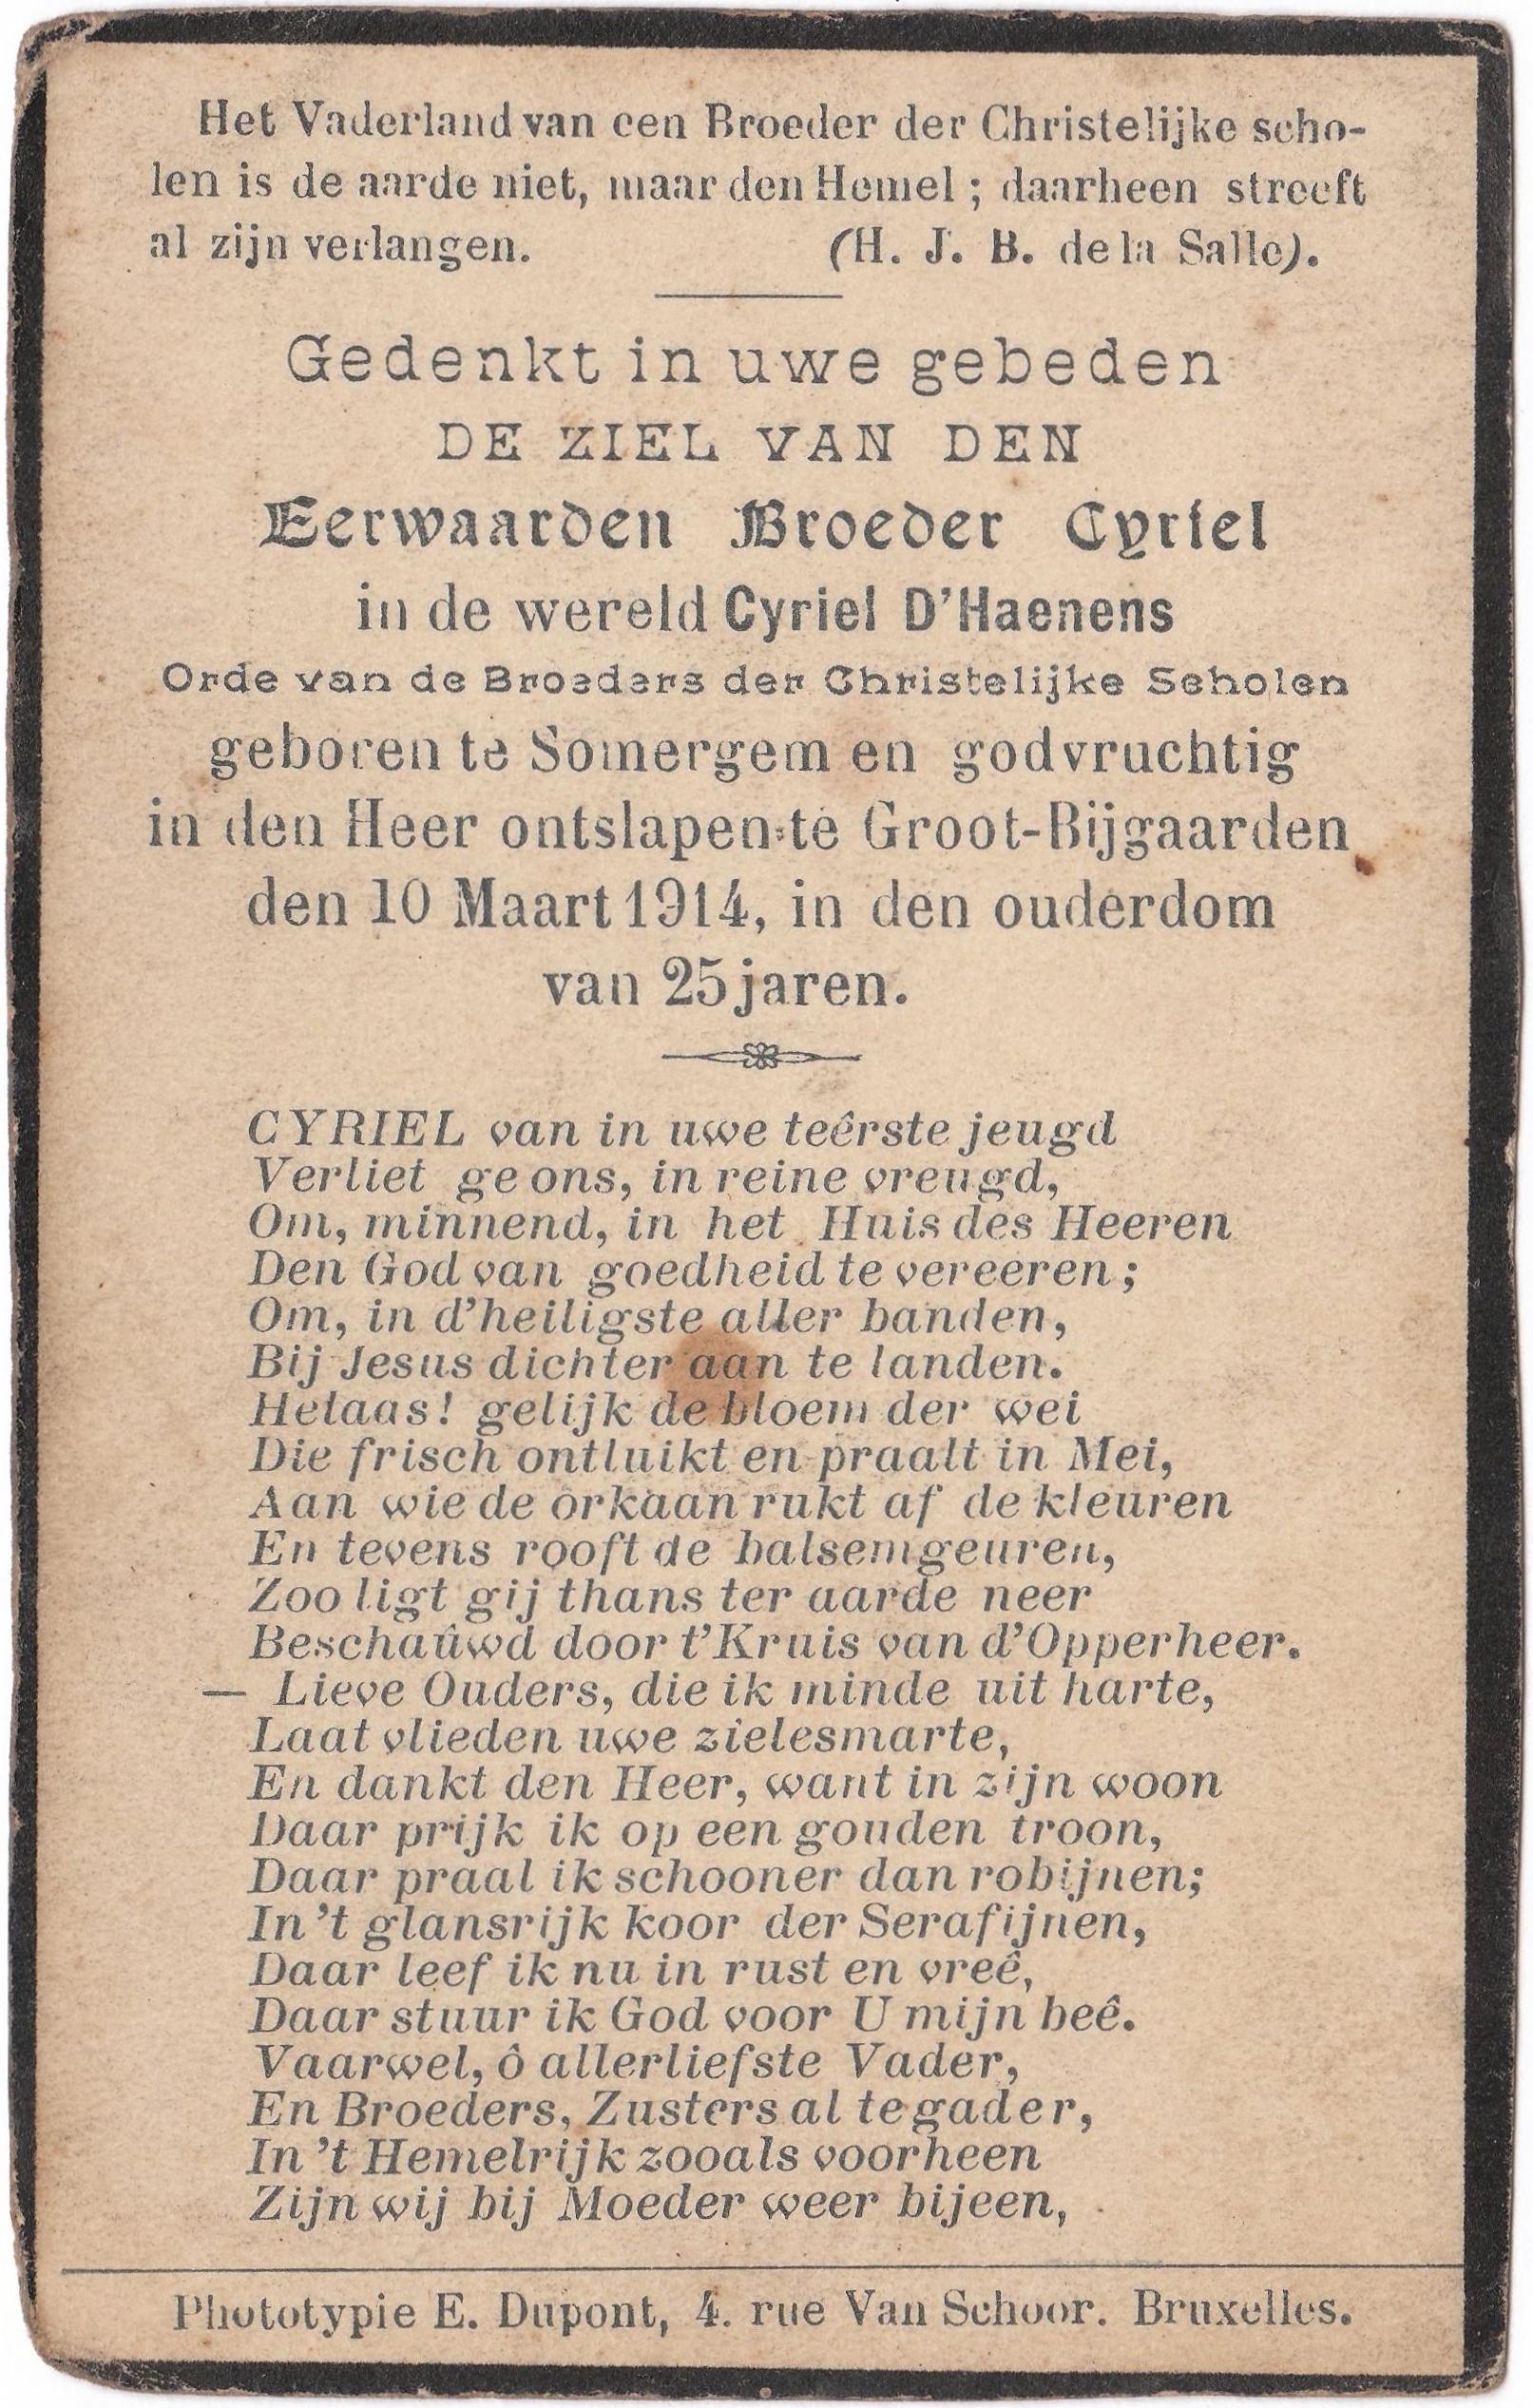 Het Vaderland van een Broeder der Christelijke scho-
len is de aarde niet, maar den Hemel ; daarheen streeft
al zijn verlangen. (H. J. B. de la Salle).
Gedenkt in uwe gebeden
DE ZIEL VAN DEN
Eerwaarden Broeder Cyriel
in de wereld Cyriel D'Haenens
Orde van de Broeders der Christelijke Scholen
geboren te Somergem en godvruchtig
in den Heer ontslapen te Groot-Bijgaarden
den 10 Maart 1914, in den ouderdom
van 25 jaren.
CYRIEL van in uwe teêrste jeugd
Verliet ge ons, in reine vreugd,
Om, minnend, in het Huis des Heeren
Den God van goedheid te vereeren ;
Om, in d'heiligste aller banden,
Bij Jesus dichter aan te landen.
Helaas! gelijk de bloem der wei
Die frisch ontluikt en praalt in Mei,
Aan wie de orkaan rukt af de kleuren
En tevens rooft de balsemgeuren,
Zoo ligt gij thans ter aarde neer
Beschaûwd door t'Kruis van d'Opperheer.
— Lieve Ouders, die ik minde uit harte,
Laat vlieden uwe zielesmarte,
En dankt den Heer, want in zijn woon
Daar prijk ik op een gouden troon,
Daar praal ik schooner dan robijnen;
In 't glansrijk koor der Serafijnen,
Daar leef ik nu in rust en vreê,
Daar stuur ik God voor U mijn beê.
Vaarwel, ô allerliefste Vader,
En Broeders, Zusters al te gader,
In 't Hemelrijk zooals voorheen
Zijn wij bij Moeder weer bijeen,
Phototypie E. Dupont, 4. rue Van Schoor. Bruxelles.